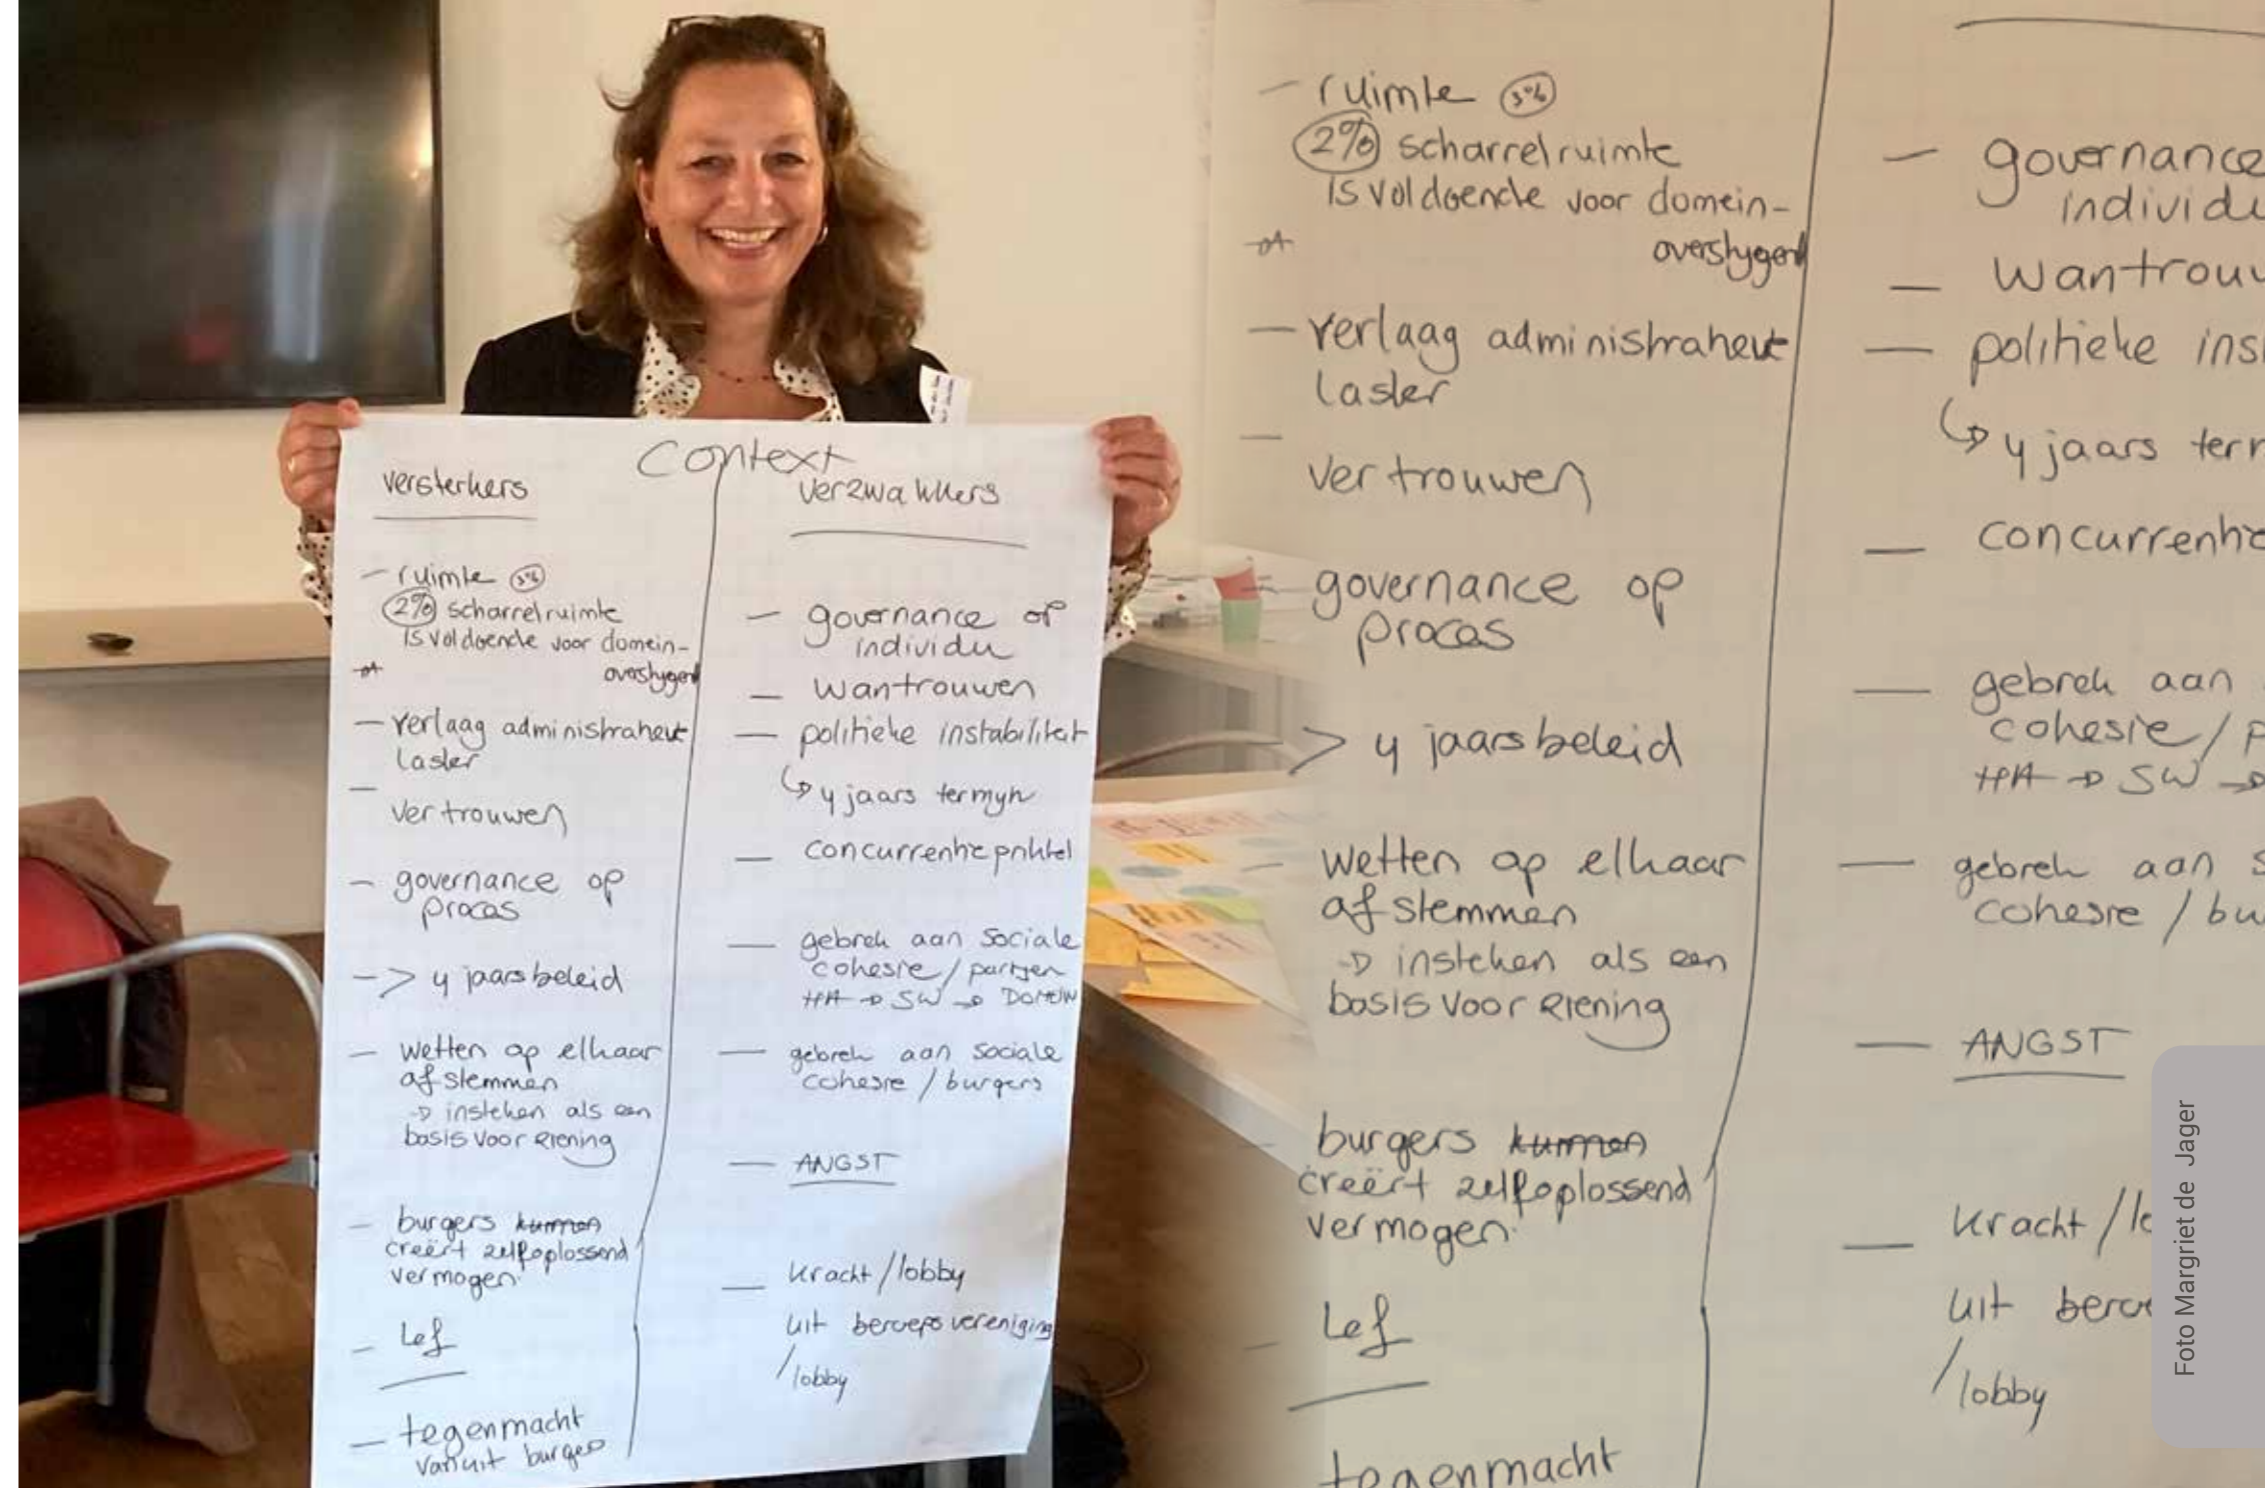 Context
versterkers
- ruimte 3%
2% scharrelruimte
is voldoende voor domein-
overstygend
- verlaag administratieve
lasten
- vertrouwen
- governance op
proces
- > 4 jaarsbeleid
- wetten op elkaar
afstemmen
→ insteken als een
basisvoorziening
- burgers kunnen
creëert zelfoplossend
vermogen.
- Lef
- tegenmacht
vanuit burger
verzwakkers
- governance op
individu
- wantrouwen
- politieke instabiliteit
↳ 4 jaars termyn
- concurrentieprikkel
- gebrek aan sociale
cohesie / partijen
HA → SW →
- gebrek aan sociale
cohesie / burgers
- ANGST
- kracht / lobby
uit beroepsvereniging
/ lobby
- ruimte 3%
2% scharrelruimte
is voldoende voor domein-
overstygend
- verlaag administratieve
lasten
- vertrouwen
governance op
proces
- > 4 jaarsbeleid
- wetten op elkaar
afstemmen
→ insteken als een
basisvoorziening
- burgers kunnen
creëert zelfoplossend
vermogen.
- Lef
tegenmacht
- governance
individu
- wantrouw
- politieke ins
↳ 4 jaars ter
- concurrentie
- gebrek aan
cohesie / p
HA → SW →
- gebrek aan s
cohesie / bu
- ANGST
- kracht / lo
uit beroe
/ lobby
Foto Margriet de Jager